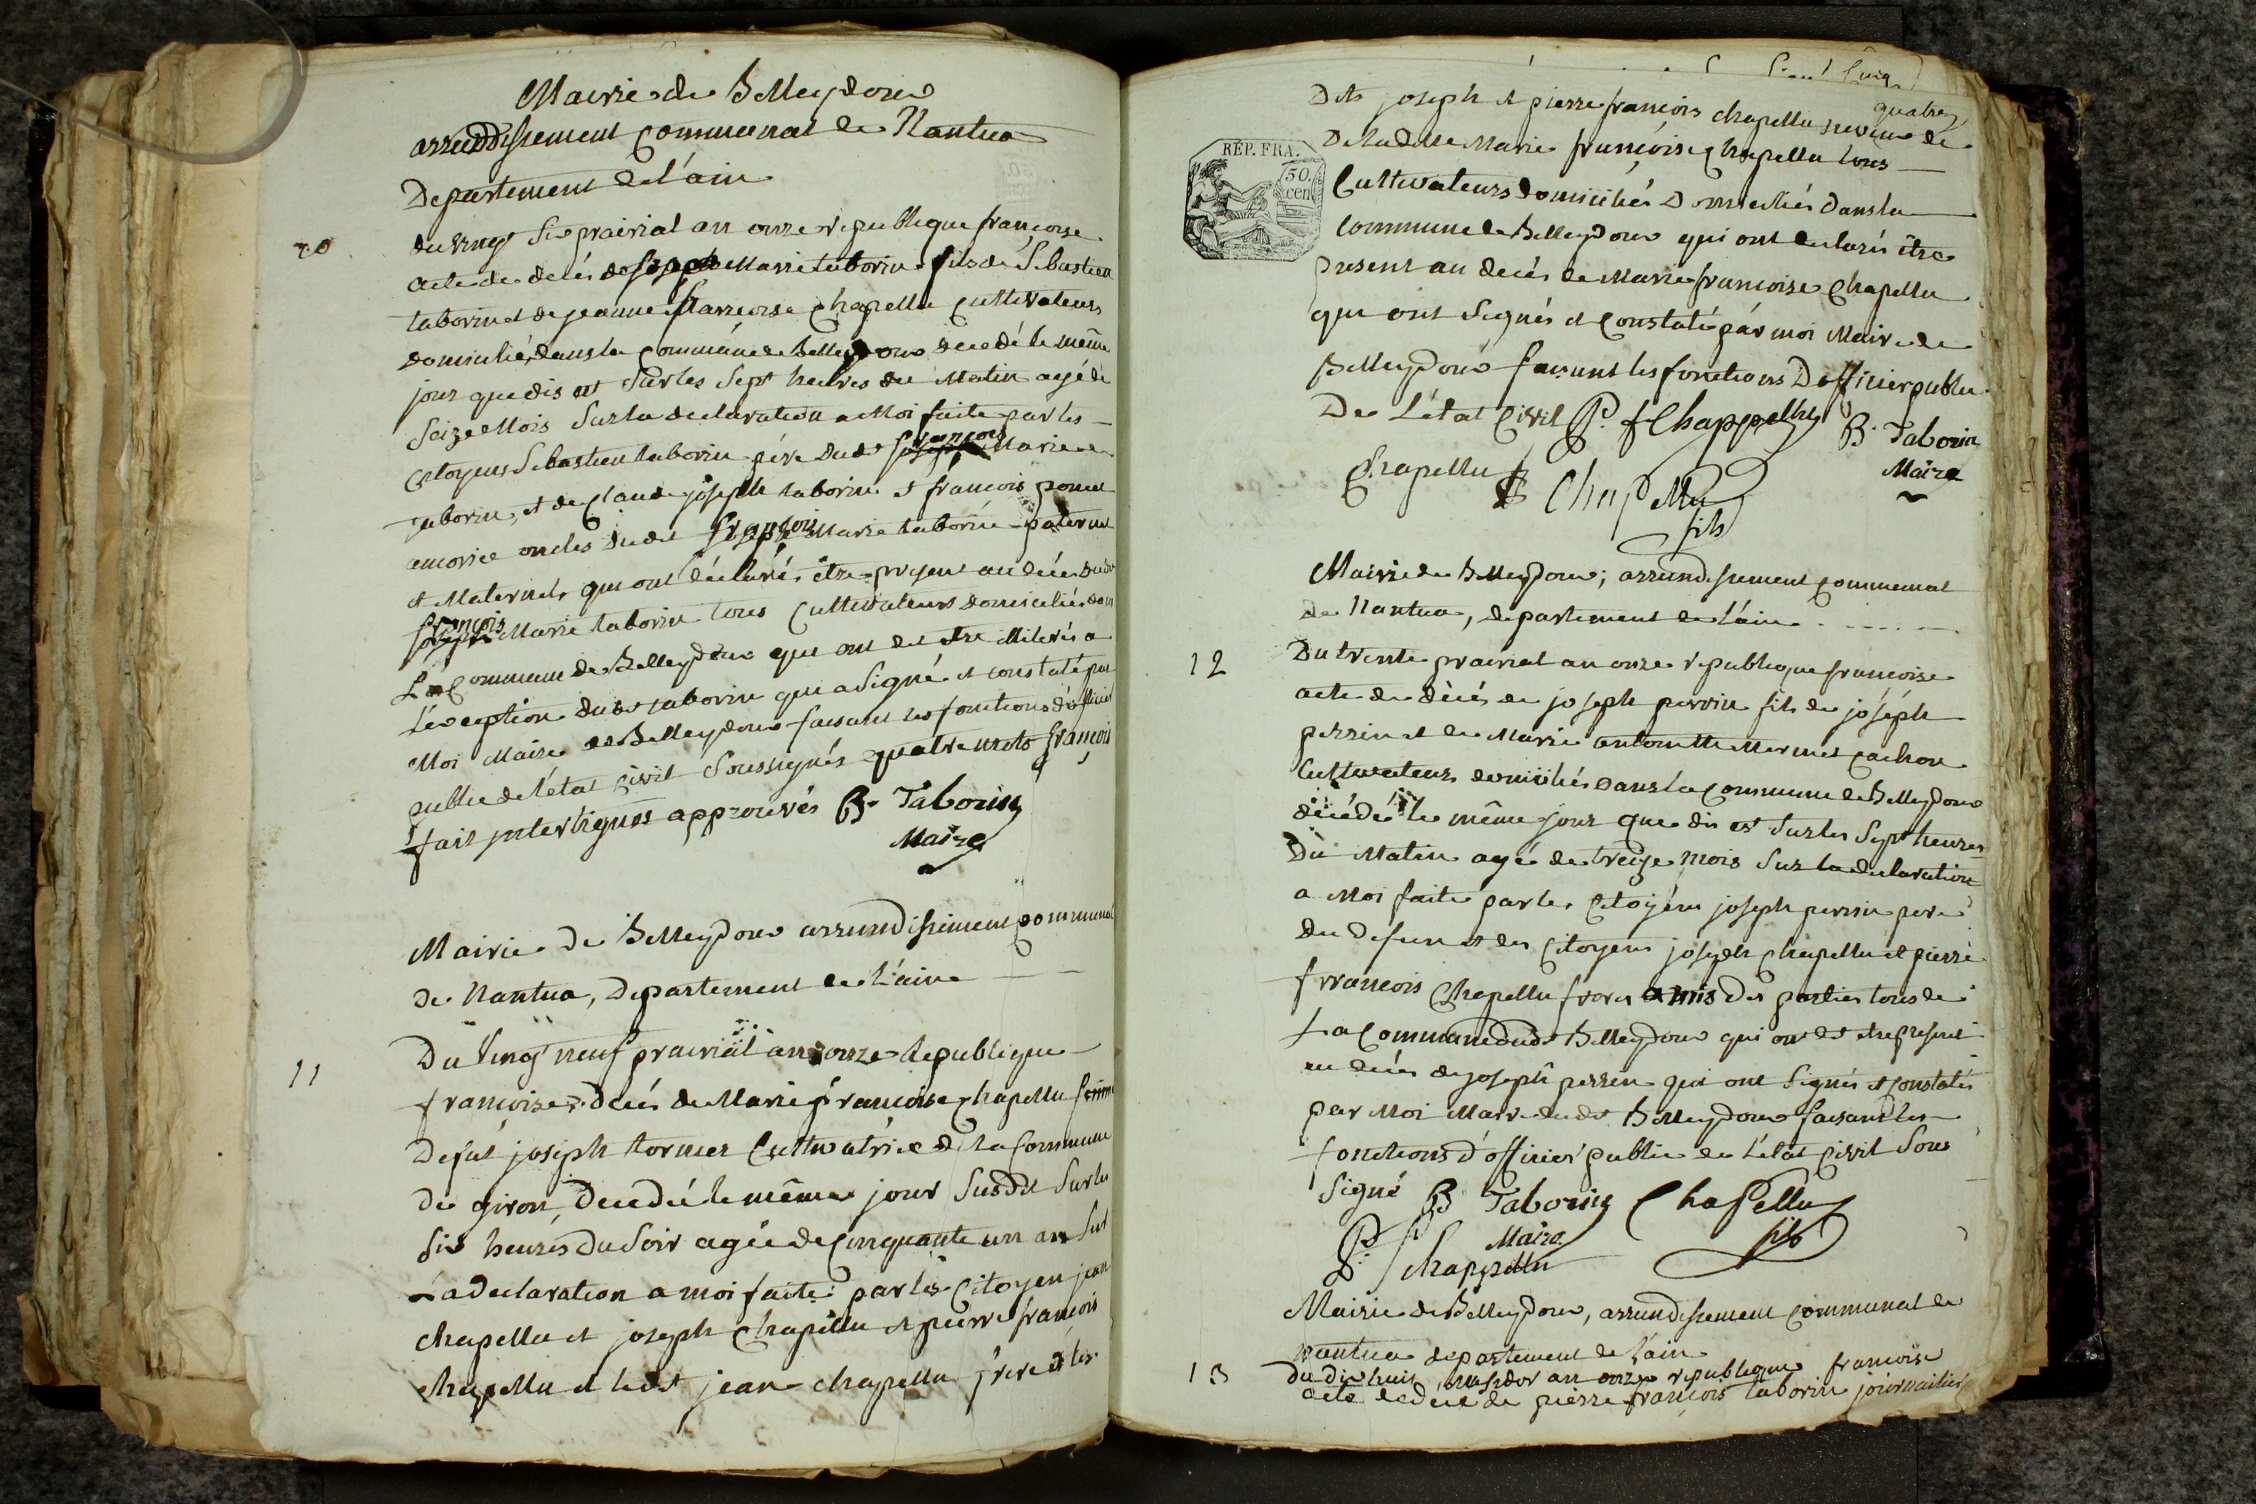 Mairie de Belleydoux
arrundissement communal de Nantua
Departement de l'ain
10
du vingt six prairial an onze republique françoise
acte de decés de joseph Marie taborin fils de Sebastien
taborin et de jeanne françoise chapellu cultivateurs
domiciliés dans la commune de Belleydoux decedé le même
jour que dis est sur les sept heures du Matin agé de
seize Mois sur la declaration a Moi faite par les
citoyens Sebastien taborin pére dudt françois Marie
taborin, et de claude joseph taborin et françois poncet
oncles dudit françois Marie taborin paternel
et Maternel, qui ont déclaré être present au decés dudt
françois Marie taborin tous cultivateurs domiciliés dans
La commune de Belleydoux qui ont dit être illiterés a
l'exception dudt taborin qui a signé et constaté par
Moi Maire de Belleydoux faisant les fonctions d'officier
public de l'état civil soussignés quatre mots françois
fait interlignes approuvés B. Taborin
Maire
Mairie de Belleydoux arrundissement communal
de Nantua, Departement de l'ain
11
Du vingt neuf prairial an onze republique
françoise decés de Marie françoise chapellu femme
defut joseph tornier cultivatrice de la commune
de giron, decedée le même jour susdit sur les
six heures du soir agée de cinquante un an sur
La declaration a moi faite par les citoyen jean
chapellu et joseph chapellu et pierre françois
chapellu et ledt jean chapellu frere et les
quatre
Dits joseph et pierre françois chapellu neveux de
De ladite Marie françoise chapellu tous
REP. FRA.
50. cen.
Cultivateurs domiciliés Domiciliés dans la
commune de Belleydoux qui ont declarés être
present au decés de Marie françoise chapellu
qui ont signés et constaté par moi Maire de
Belleydoux faisant les fonctions D'officier public
De L'état civil P. f Chappellu B. Taborin
Maire
Chapellu Chapellu
fils
Mairie de Belleydoux, arrundissement communal
de Nantua, departement de l'ain
12
Du trente prairial an onze republique françoise
acte de décés de joseph perrin fils de joséph
perrin et de Marie antoinette Mermet cachon
Cultivateurs domiciliés dans la commune de Belleydoux
décédé le même jour que dis est sur les sept heures
Du Matin agé de treize mois sur la declaration
a Moi faite par le citoyen joseph perrin pere
du defunt et des citoyens joseph chapellu et pierre
françois chapellu freres amis des parties tous de
La commune dudt Belleydoux qui ont dt etre present
au decés de joseph perrin qui ont signés et constatés
par Moi Maire dudt Belleydoux faisant les
fonctions d'officier public de L'état civil sous
signé B Taborin Chapellu
Maire fils
P. f chappellu
Mairie de Belleydoux, arrundissement communal de
Nantua departement de l'ain
13
du dix huit messidor an onze republique françoise
acte de decé de pierre françois taborin journailier